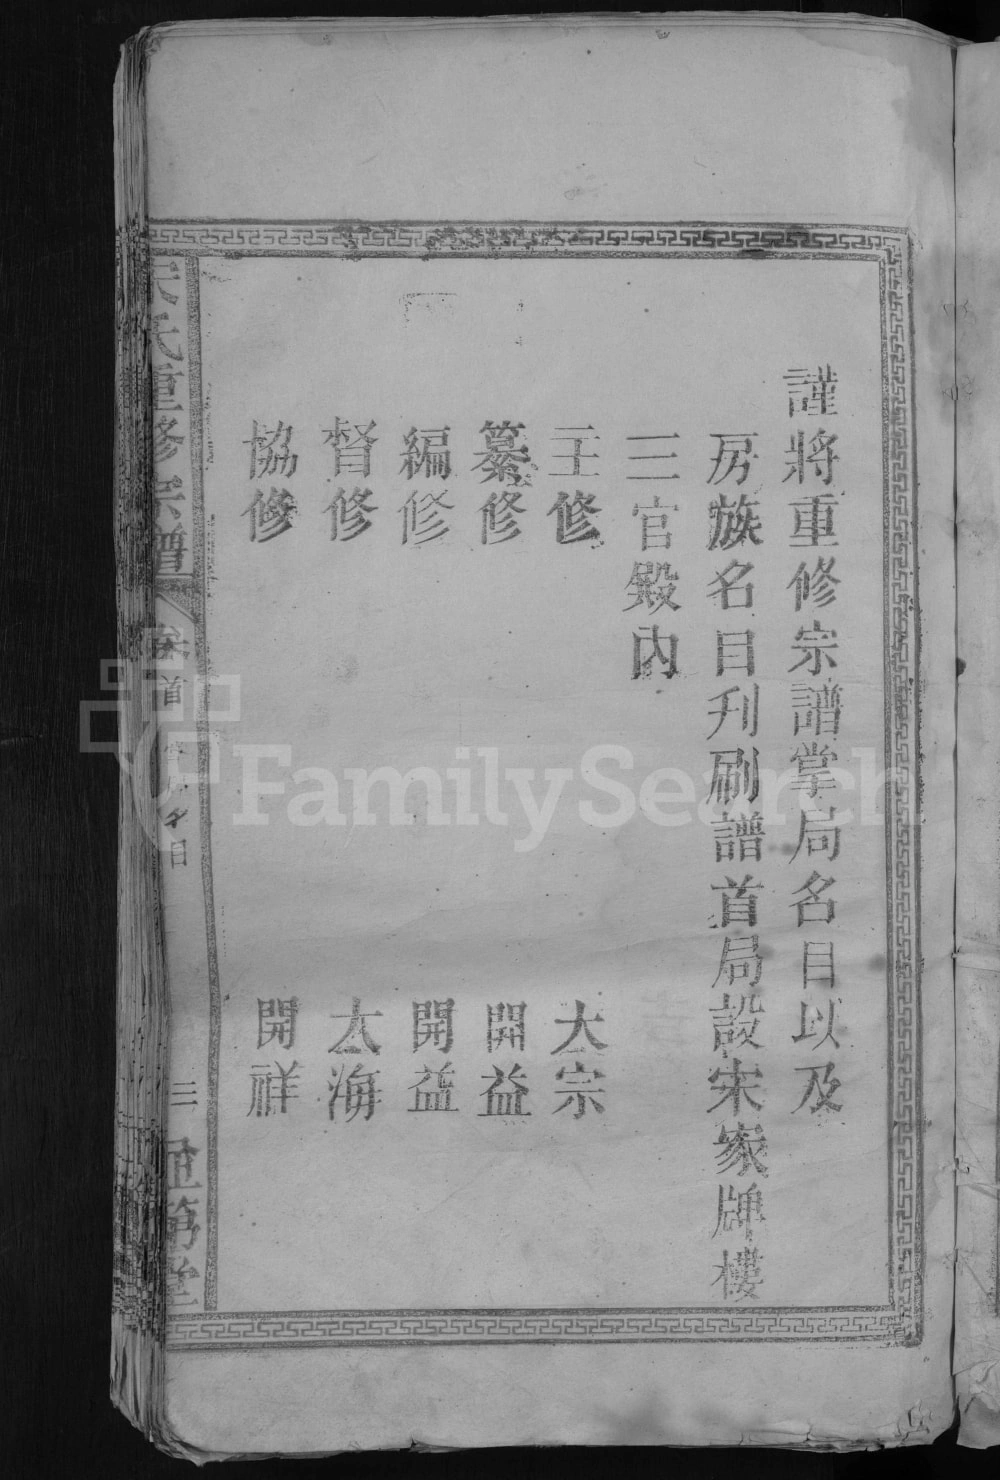 謹將重修宗譜掌局名目以及
房族名目刋刷譜首局設宋家牌樓
三官殿內
主修 大宗
纂修 開益
編修 開益
督修 太海
協修 開祥
氏重修宗譜 卷首 名目 三
FamilySearch